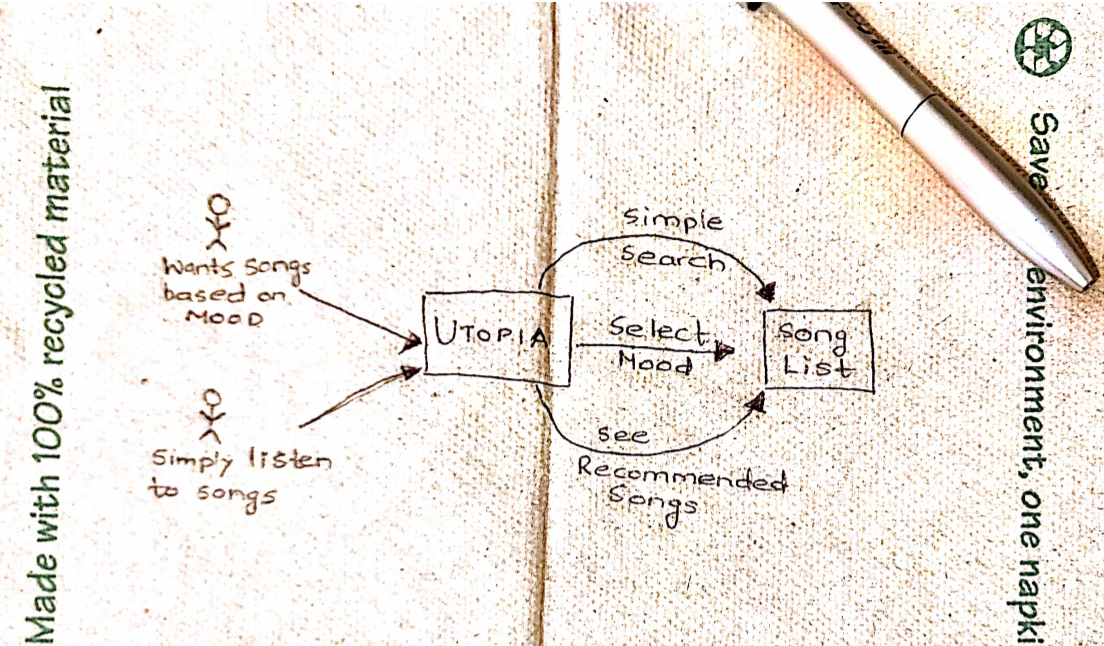 Made with 100% recycled material
Wants Songs
based on
MOOD
Simply listen
to songs
UTOPIA
Simple
Search
Select
Mood
see
Recommended
Songs
Song
List
Save
environment, one napki